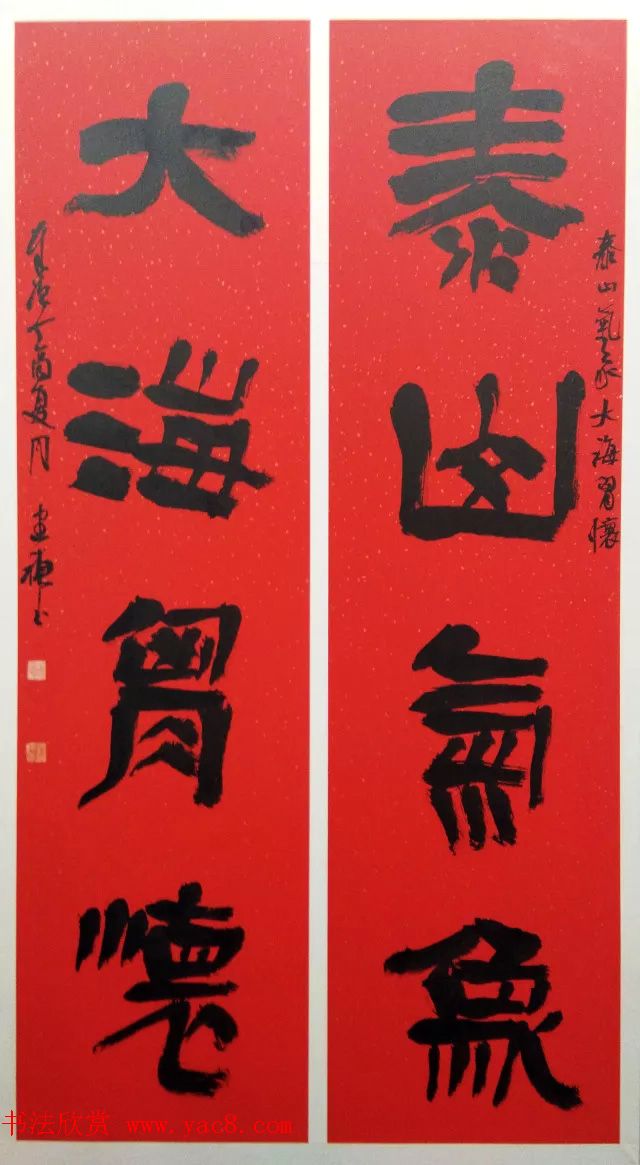 泰山氣象
泰山氣象大海胸懷
大海胸懷
丁酉夏月
书法欣赏 www.yac8.com